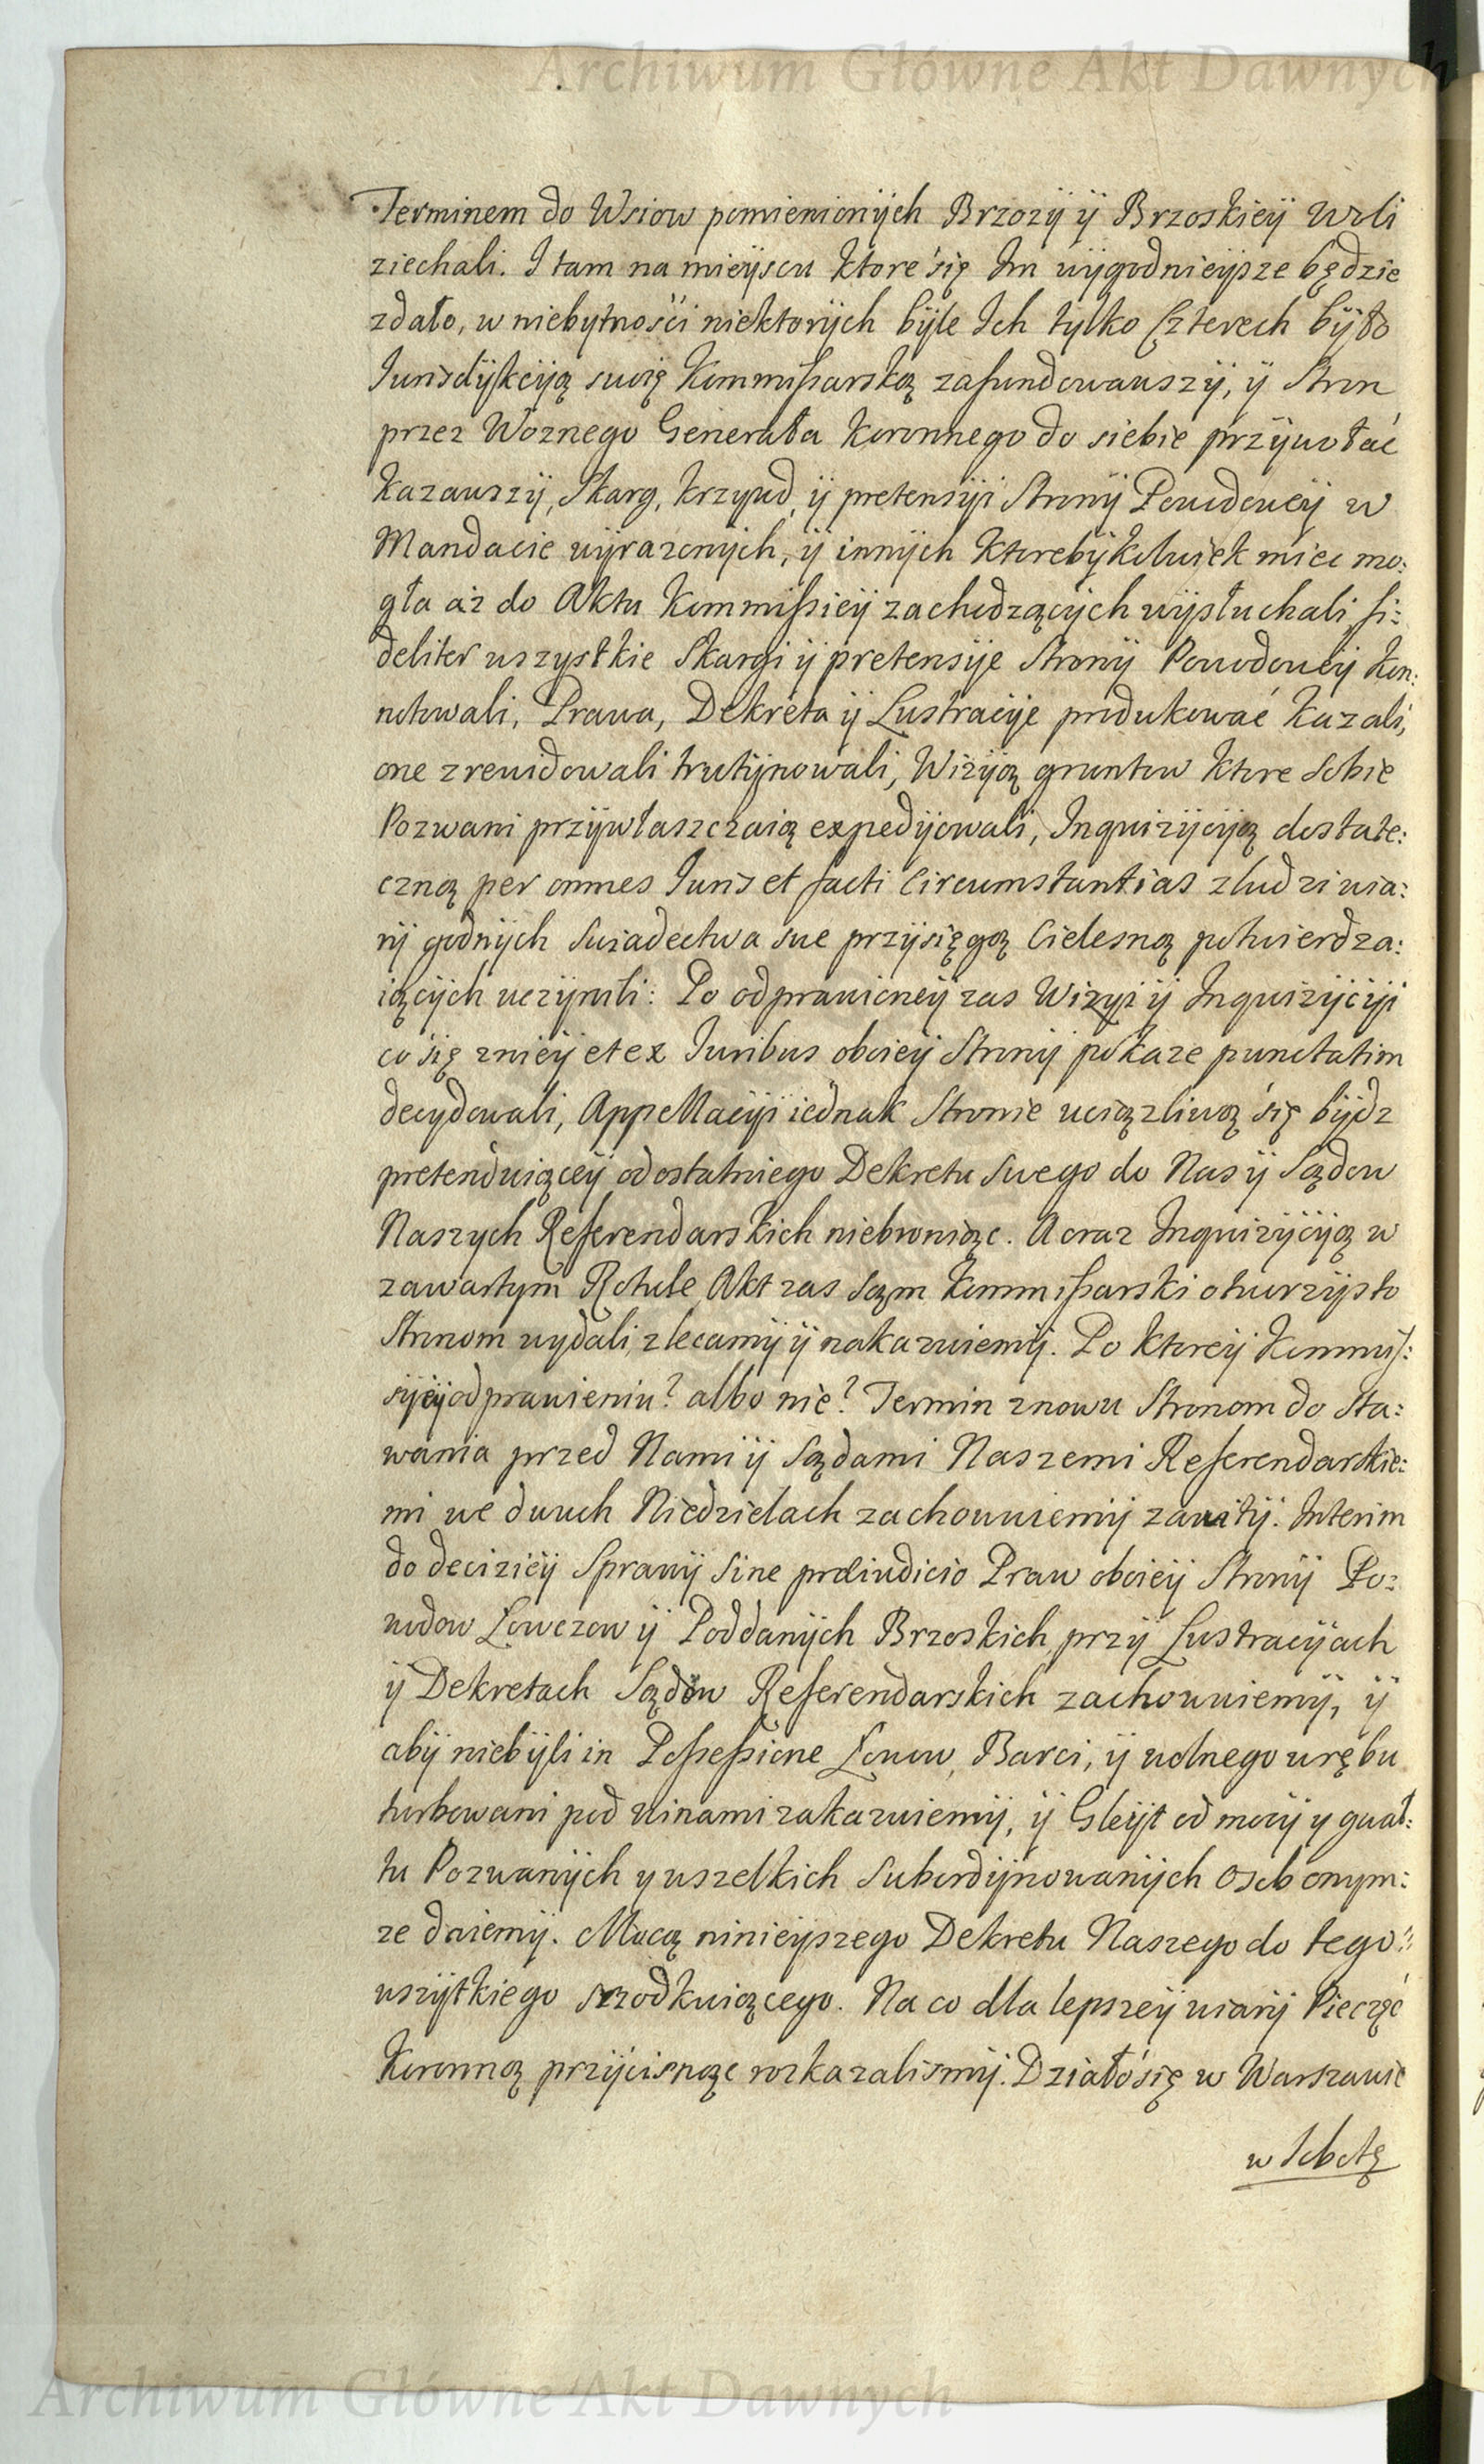 Archiwum Główne Akt Dawnych
Terminem do Wsiow pomienionÿch Brzozÿ ÿ Brzoskieÿ Woli
ziechali. I tam na mieÿscu ktore się Im wÿgodnieÿsze będzie
zdało, w niebytności niektorÿch bÿle Ich tylko Czterech bÿło
Iurisdÿkcÿą swoię Kommissarską zafundowawszÿ, ÿ Stron
przez Woznego Generała Koronnego do siebie przÿwołać
kazawszÿ, Skarg, krzywd, ÿ pretensÿi Stronÿ Powodoweÿ w
Mandacie wÿrazonÿch, ÿ innÿch ktorebÿkolwiek miec mo:
gła aż do Aktu Kommissieÿ zachodzącÿch wÿsłuchali, fi:
deliter wszystkie Skargi ÿ pretensÿe Stronÿ Powodoweÿ kon:
notowali, Prawa, Dekreta ÿ Lustracÿe produkować kazali,
one zrewidowali trutÿnowali, Wizÿą gruntow ktore sobie
Pozwani przÿwłaszczaią expedÿowali, Inquizÿcÿą dostate:
czną per omnes Iuris et facti Circumstantias z ludzi wia:
rÿ godnÿch Swiadectwa swe przÿsięgą Cielesną potwierdza:
iącÿch uczÿnili: Po odprawioneÿ zas Wizyi ÿ Inquizÿcÿi
co się z nieÿ et ex Iuribus oboieÿ Stronÿ pokaze punctatim
decydowali, Appellacÿi iednak Stronie uciązliwą się bÿdz
pretenduiąceÿ od ostatniego Dekretu Swego do Nas ÿ Sądow
Naszych Referendarskich niebroniąc. A oraz Inquizÿcÿą w
zawartym Rotule Akt zas sąm Kommissarski otworzÿsto
Stronom wydali, zlecamÿ ÿ nakazuiemÿ. Po ktoreÿ Kommis:
sÿeÿ odprawieniu? albo nie? Termin znowu Stronom do sta:
wania przed Nami ÿ Sądami Naszemi Referendarskie:
mi we dwuch Niedzielach zachowuiemÿ zawitÿ. Interim
do decizieÿ Sprawÿ Sine præiudicio Praw oboieÿ Stronÿ Po:
wodow Lowczow ÿ Poddanÿch Brzoskich, przÿ Lustracÿach
ÿ Dekretach Sądow Referendarskich zachowuiemÿ, ÿ
abÿ niebÿli in Possessione Lowow, Barci, ÿ wolnego wrębu
turbowani pod winami zakazuiemÿ, ÿ Gleÿt od mocÿ y gwał:
tu Pozwanÿch y wszelkich subordÿnowanÿch osob onym:
ze daiemÿ. Mocą ninieÿszego Dekretu Naszego do tego:
wszÿtkiego srzodkuiącego. Na co dla lepszeÿ wiarÿ Pieczęć
Koronną przÿcisnąc rozkazalismÿ. Działo się w Warszawie
w Sobotę
Archiwum Główne Akt Dawnych